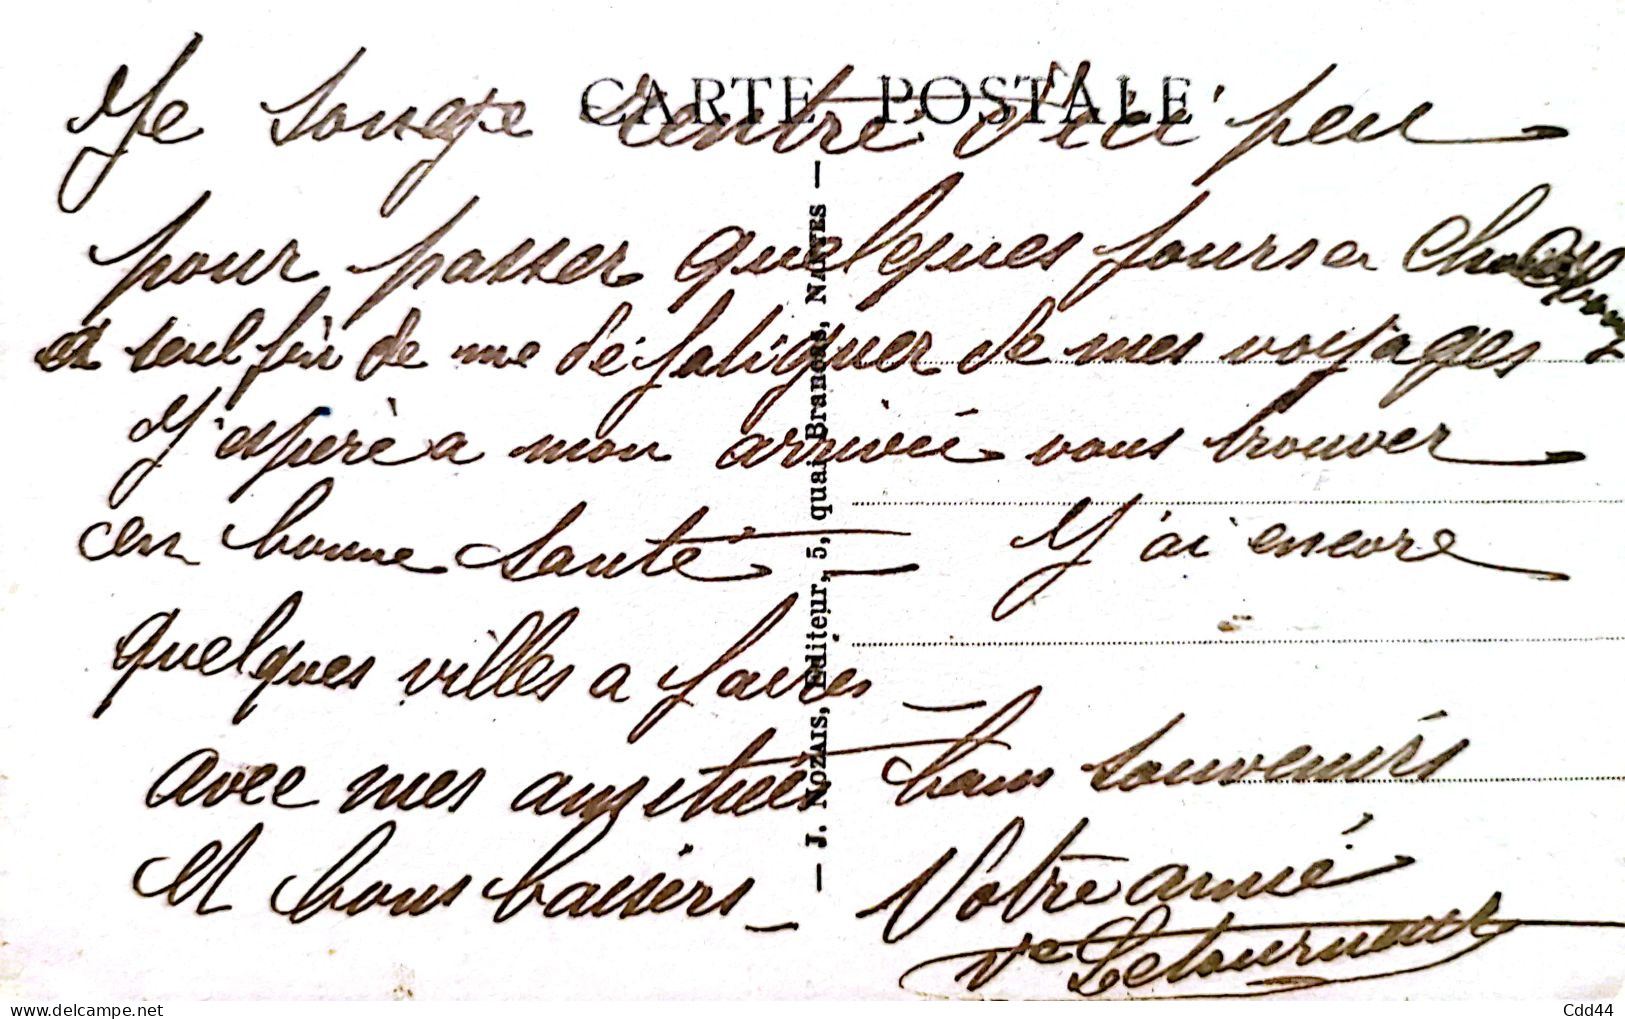 CARTE POSTALE
Je songe rentré d'ici peu
pour passer quelques jours a
et seul fin de me défatiguer de mes voyages
J'espère a mon arrivée vous trouver
en bonne santé — J'ai encore
quelques villes a faires —
avec mes amitiées bons souvenirs
et bons baisers — Votre amie
Ve Letourneau
— J. NOZAIS, Editeur, 5, quai Brancas, NANTES —
delcampe.net
Cdd44